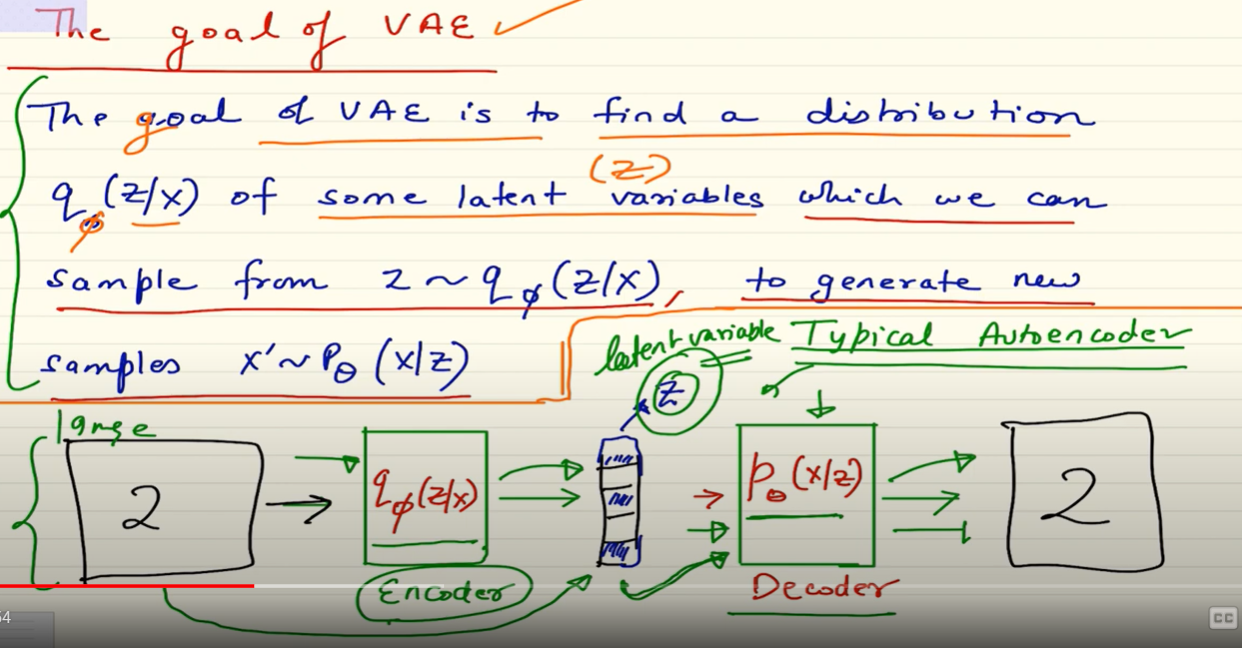 The goal of VAE
The goal of VAE is to find a distribution
(z)
qφ(z/x) of some latent variables which we can
sample from z ~ qφ(z/x), to generate new
samples x' ~ Pθ(x/z)
latent variable Typical Autoencoder
z
large
2 qφ(z/x) pθ(x/z) 2
Encoder Decoder
54
CC